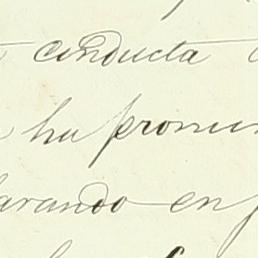 conducta
ha pronun
arando en